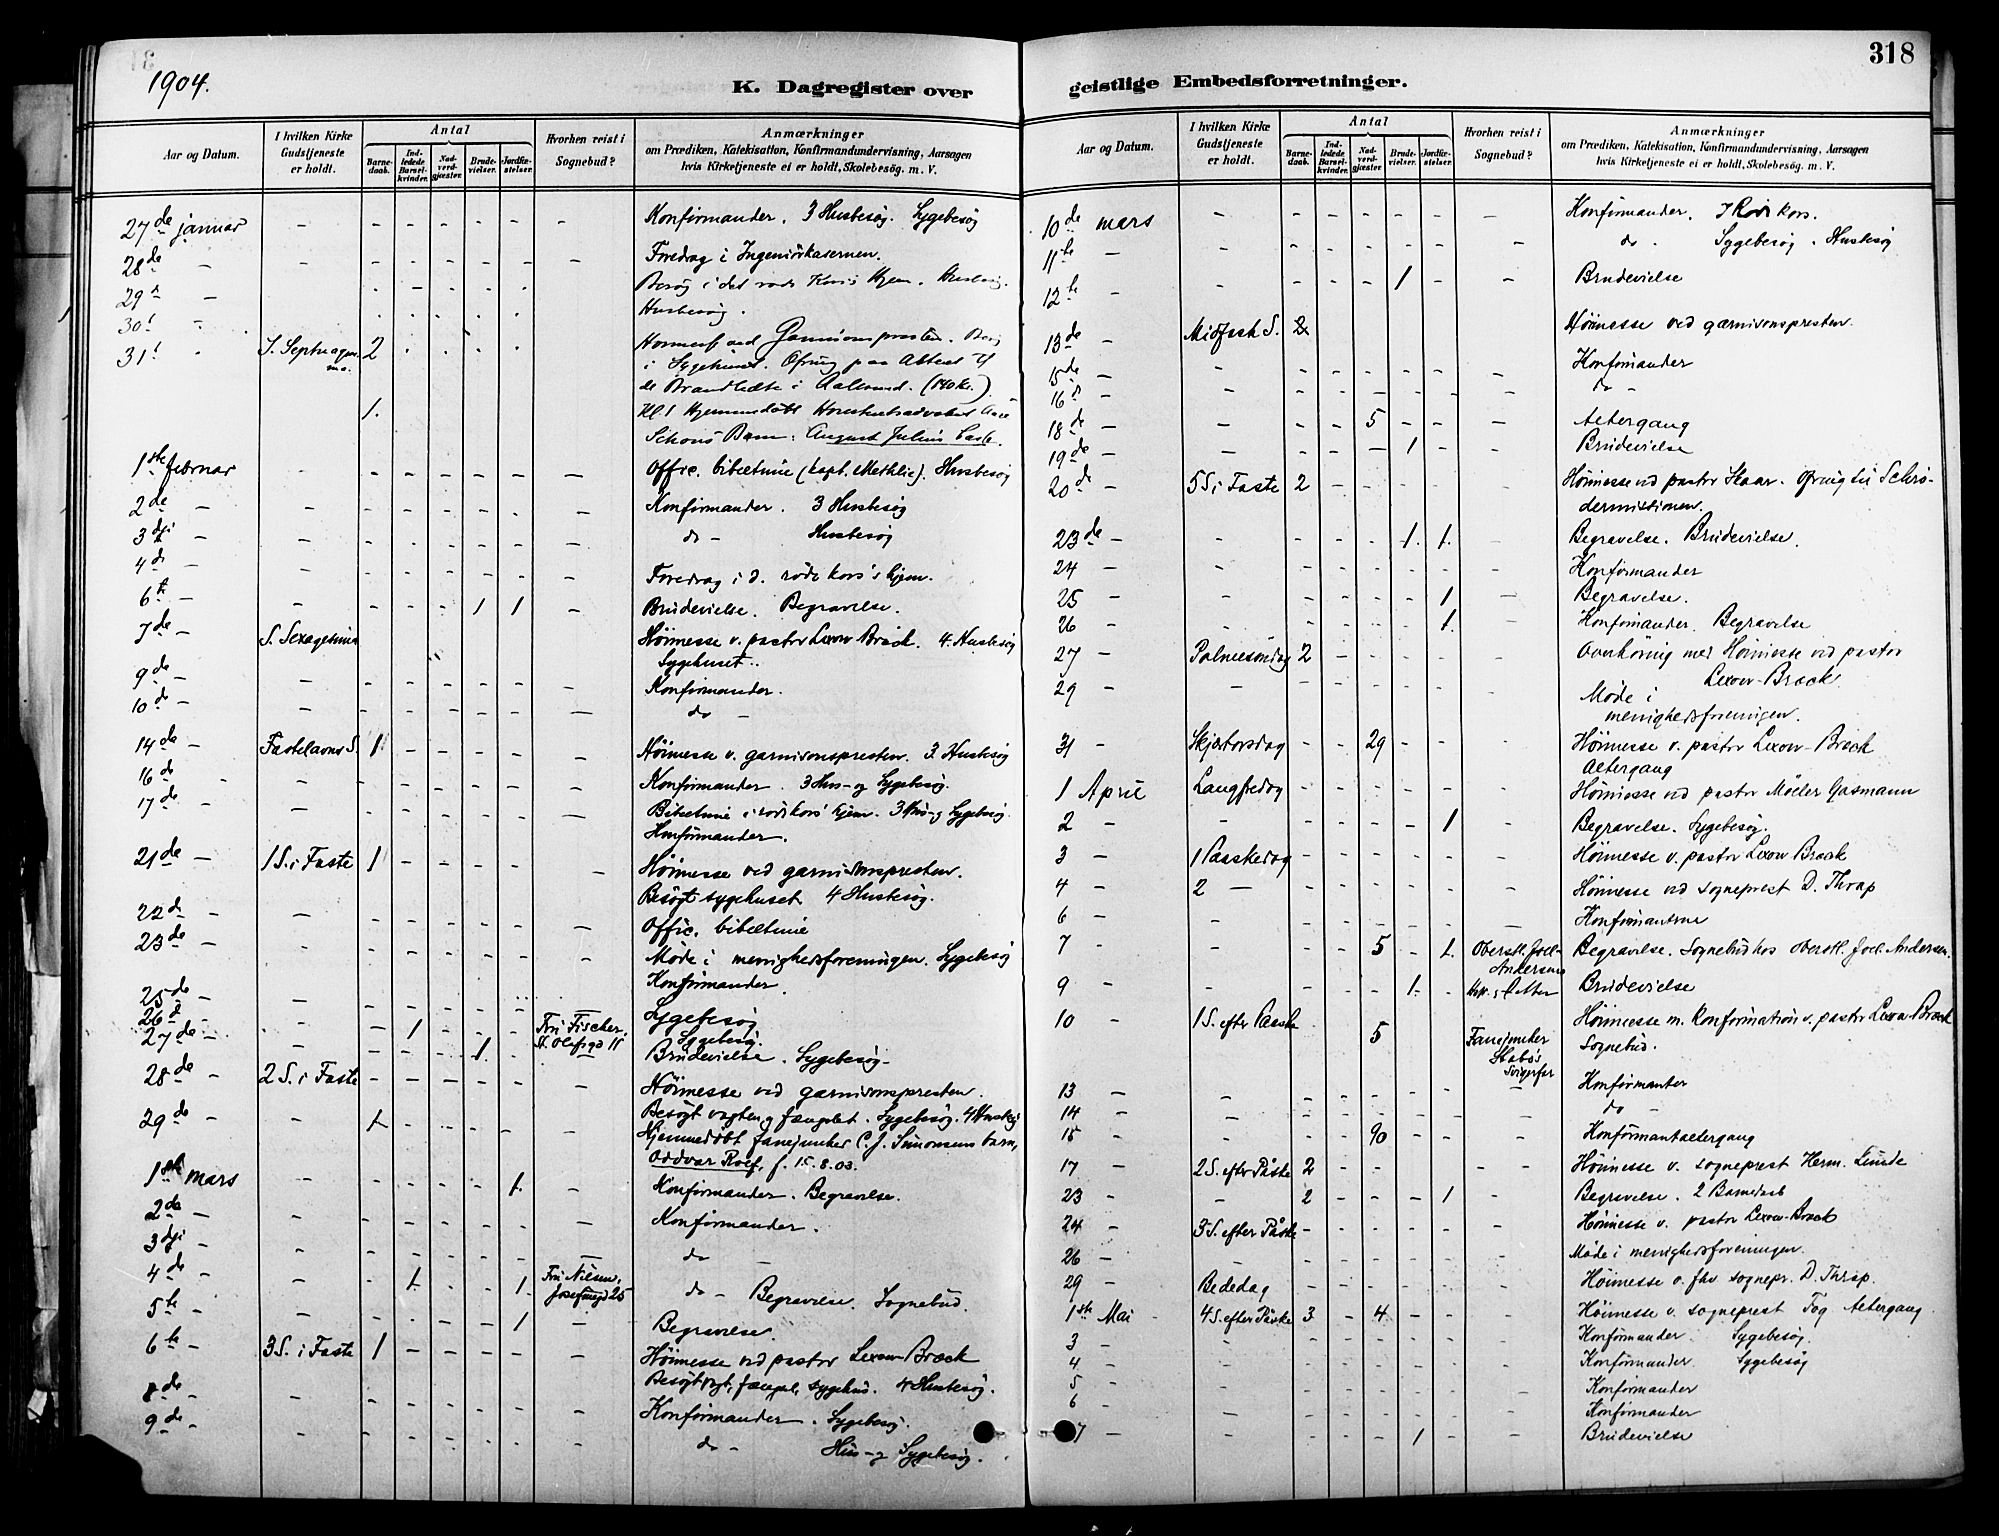 1904.
K. Dagregister over
Aar og Datum.
I hvilken Kirke Gudstjeneste er holdt.
Antal
Barnedaab.
Indledede Barselkvinder.
Nadverdgjæster.
Brudevielser.
Jordfæstelser.
Hvorhen reist i Sognebud?
Anmærkninger
om Prædiken, Katekisation, Konfirmandundervisning, Aarsagen
hvis Kirketjeneste ei er holdt, Skolebesøg. m. V.
27de januar - - - - - - - Konfirmander. 3 Husbesøg. Sygebesøg
28de - - - - - - - - Foredrag i Ingeniörkasernen.
29 - Besøg i det røde Kors's Hjem. Husbesøg.
30 - Husbesøg.
31 - S. Septuagesima. 2 Garnisonspresten.
i Sygehuset. Ofring paa Alteret til
de Brandlidte i Aalesund. (140 kr.)
1. Hjemmedöbt
Barn: August Julius
1ste februar - - - - - - - Offic. bibeltime (kapt. Methlie). Husbesøg
2de - - - - - - - - Konfirmander. 3 Husbesøg
3dje - - - - - - - - do - Husbesøg
4d - - - - - - - - Foredrag i d. røde kors's hjem.
6t - - - - - 1 1 - Brudevielse. Begravelse.
7de - S. Sexagesima - - - - - Höimesse v. pastor Lexow-Bræck. 4 Husbesøg
Sygehuset.
9de - - - - - - - - Konfirmander.
10de - - - - - - - - do -
14de - Fastelavns S. 1 - - - - Höimesse v. garnisonspresten. 3 Husbesøg
16de - - - - - - - - Konfirmander. 3 Hus- og Sygebesøg.
17de - - - - - - - - Bibeltime i rödekors' hjem. 3 Hus- og Sygebesøg.
Konfirmander.
21de - 1 S. i Faste 1 - - - - - Höimesse ved garnisonspresten.
Besøgt sygehuset. 4 Husbesøg.
22d - - - - - - - - Offic. bibeltime
23de - - - - - - - - Møde i menighedsforeningen. Sygebesøg
Konfirmander.
25de - - - - - - - - Sygebesøg
26d - - - 1 - - - Fru Fischer, St. Olafsgd 11 Sygebesøg.
27de - - - - - 1. - Brudevielse. Sygebesøg.
28de - 2 S. i Faste - - - - - - Höimesse ved garnisonspresten.
Besøgt vagten og fængslet. Sygebesøg. 4 Husbesøg
29de - - 1 - - - - - Hjemmedöbt fanejunker C. J. Simonsens barn,
Oddvar Rolf, f. 15.8.03.
1ste mars - - - - - 1. - Konfirmander. Begravelse.
2de - - - - - - - - Konfirmander.
3dje - - - - - - - - do -
4de - - - 1. - - 1. Fru Nilsen, Josefinegd 25 do - Begravelse. Sognebud.
5te - - - - - - 1 - Begravelse.
6te - 3 S. i Faste 1 - - - - - Höimesse ved pastor Lexow-Bræck
Besøgt vgt, fængsl, sygehus. 4 Husbesøg.
8de - - - - - - - - Konfirmander. Sygebesøg.
9de - - - - - - - - do - Hus- og Sygebesøg.
318
geistlige Embedsforretninger.
Aar og Datum.
I hvilken Kirke Gudstjeneste er holdt.
Antal
Barnedaab.
Indledede Barselkvinder.
Nadverdgjæster.
Brudevielser.
Jordfæstelser.
Hvorhen reist i Sognebud?
Anmærkninger
om Prædiken, Katekisation, Konfirmandundervisning, Aarsagen
hvis Kirketjeneste ei er holdt, Skolebesøg. m. V.
10de mars - - - - - - - Konfirmander. kors.
11te - - - - - - - - do. Sygebesøg. Husbesøg
12te - - - - - 1 - - Brudevielse
13de - Midfast S. 2 Höimesse ved garnisonspresten.
15de - - - - - - - - Konfirmander
16 - - - - - - - - do -
18de - - - - 5 - - - Altergang
19de - - - - - 1 - - Brudevielse
20de - 5 S i Faste 2 - - - - - Höimesse ved pastor Skaar. Ofring til Schrö-
dermissionen.
23de - - - - - 1. 1. - Begravelse. Brudevielse.
24 - - - - - - - - Konfirmander
25 - - - - - - 1 - Begravelse.
26 - - - - - - 1. - Konfirmander. Begravelse
27 - Palmesöndag 2 - - - - - Overhöring med Höimesse ved pastor
Lexow-Bræck
29 - - - - - - - - Møde i
menighedsforeningen.
31 - Skjærtorsdag - - 29 - - - Höimesse v. pastor Lexow-Bræck
Altergang
1 April Langfredag - - - - - - Höimesse ved pastor Möller Gasmann
2 - - - - - - 1 - Begravelse. Sygebesøg.
3 - 1 Paaskedag - - - - - - Höimesse v. pastor Lexow Bræck
4 - 2 - - - - - - - Höimesse ved sogneprest D. Thrap
6 - - - - - - - - Konfirmanterne
7 - - - - 5 - 1. Oberstl. Joel-Andersens Begravelse. Sognebud hos oberstl. Joel-Andersen.
9 - - - - - 1. - Brudevielse
10 - 1 S. efter Paaske 5 Fanejunker Stabö's Svigerfar Höimesse m. Konfirmation v. pastor Lexow Bræck
Sognebud.
13 - - - - - - - - Konfirmanter
14 - - - - - - - - do -
15 - - - - 90 - - - Konfirmantaltergang
17 - 2 S. efter Påske 2 - - - - - Höimesse v. sogneprest Herm. Lunde
23 - - 2 - - - 1 - Begravelse. 2 Barnedaab
24 3 S. efter Påske - - - - - - Höimesse v. pastor Lexow-Bræck
26 - - - - - - - - Møde i menighedsforeningen.
29 - Bededag - - - - - - Höimesse v. fhv sognepr. D. Thrap.
1ste Mai 4 S. efter Påske 3 - 4 - - - Höimesse v. sogneprest Fog Altergang
3 - - - - - - - - Konfirmander. Sygebesøg.
4 - - - - - - - - Konfirmander. Sygebesøg
5 - - - - - - - - Konfirmander
6 - - - - - - - - Konfirmander
7 - - - - - 1 - - Brudevielse